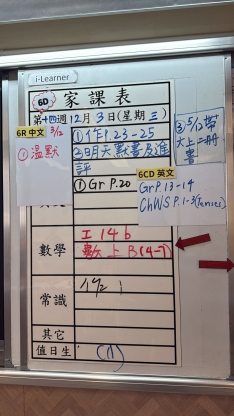 i-Learner
6D 家課表
第十四週 12月3日(星期三)
6R 中文 3/12
①溫默
①作P.23-25
②明天默書及進
評
③5/12帶
六上二冊
書
①Gr P.20
6CD 英文
Gr P.13-14
ChWS P.1-3(Tenses)
數學
工14b
數上B(4-7)
常識
其它
值日生
(1)